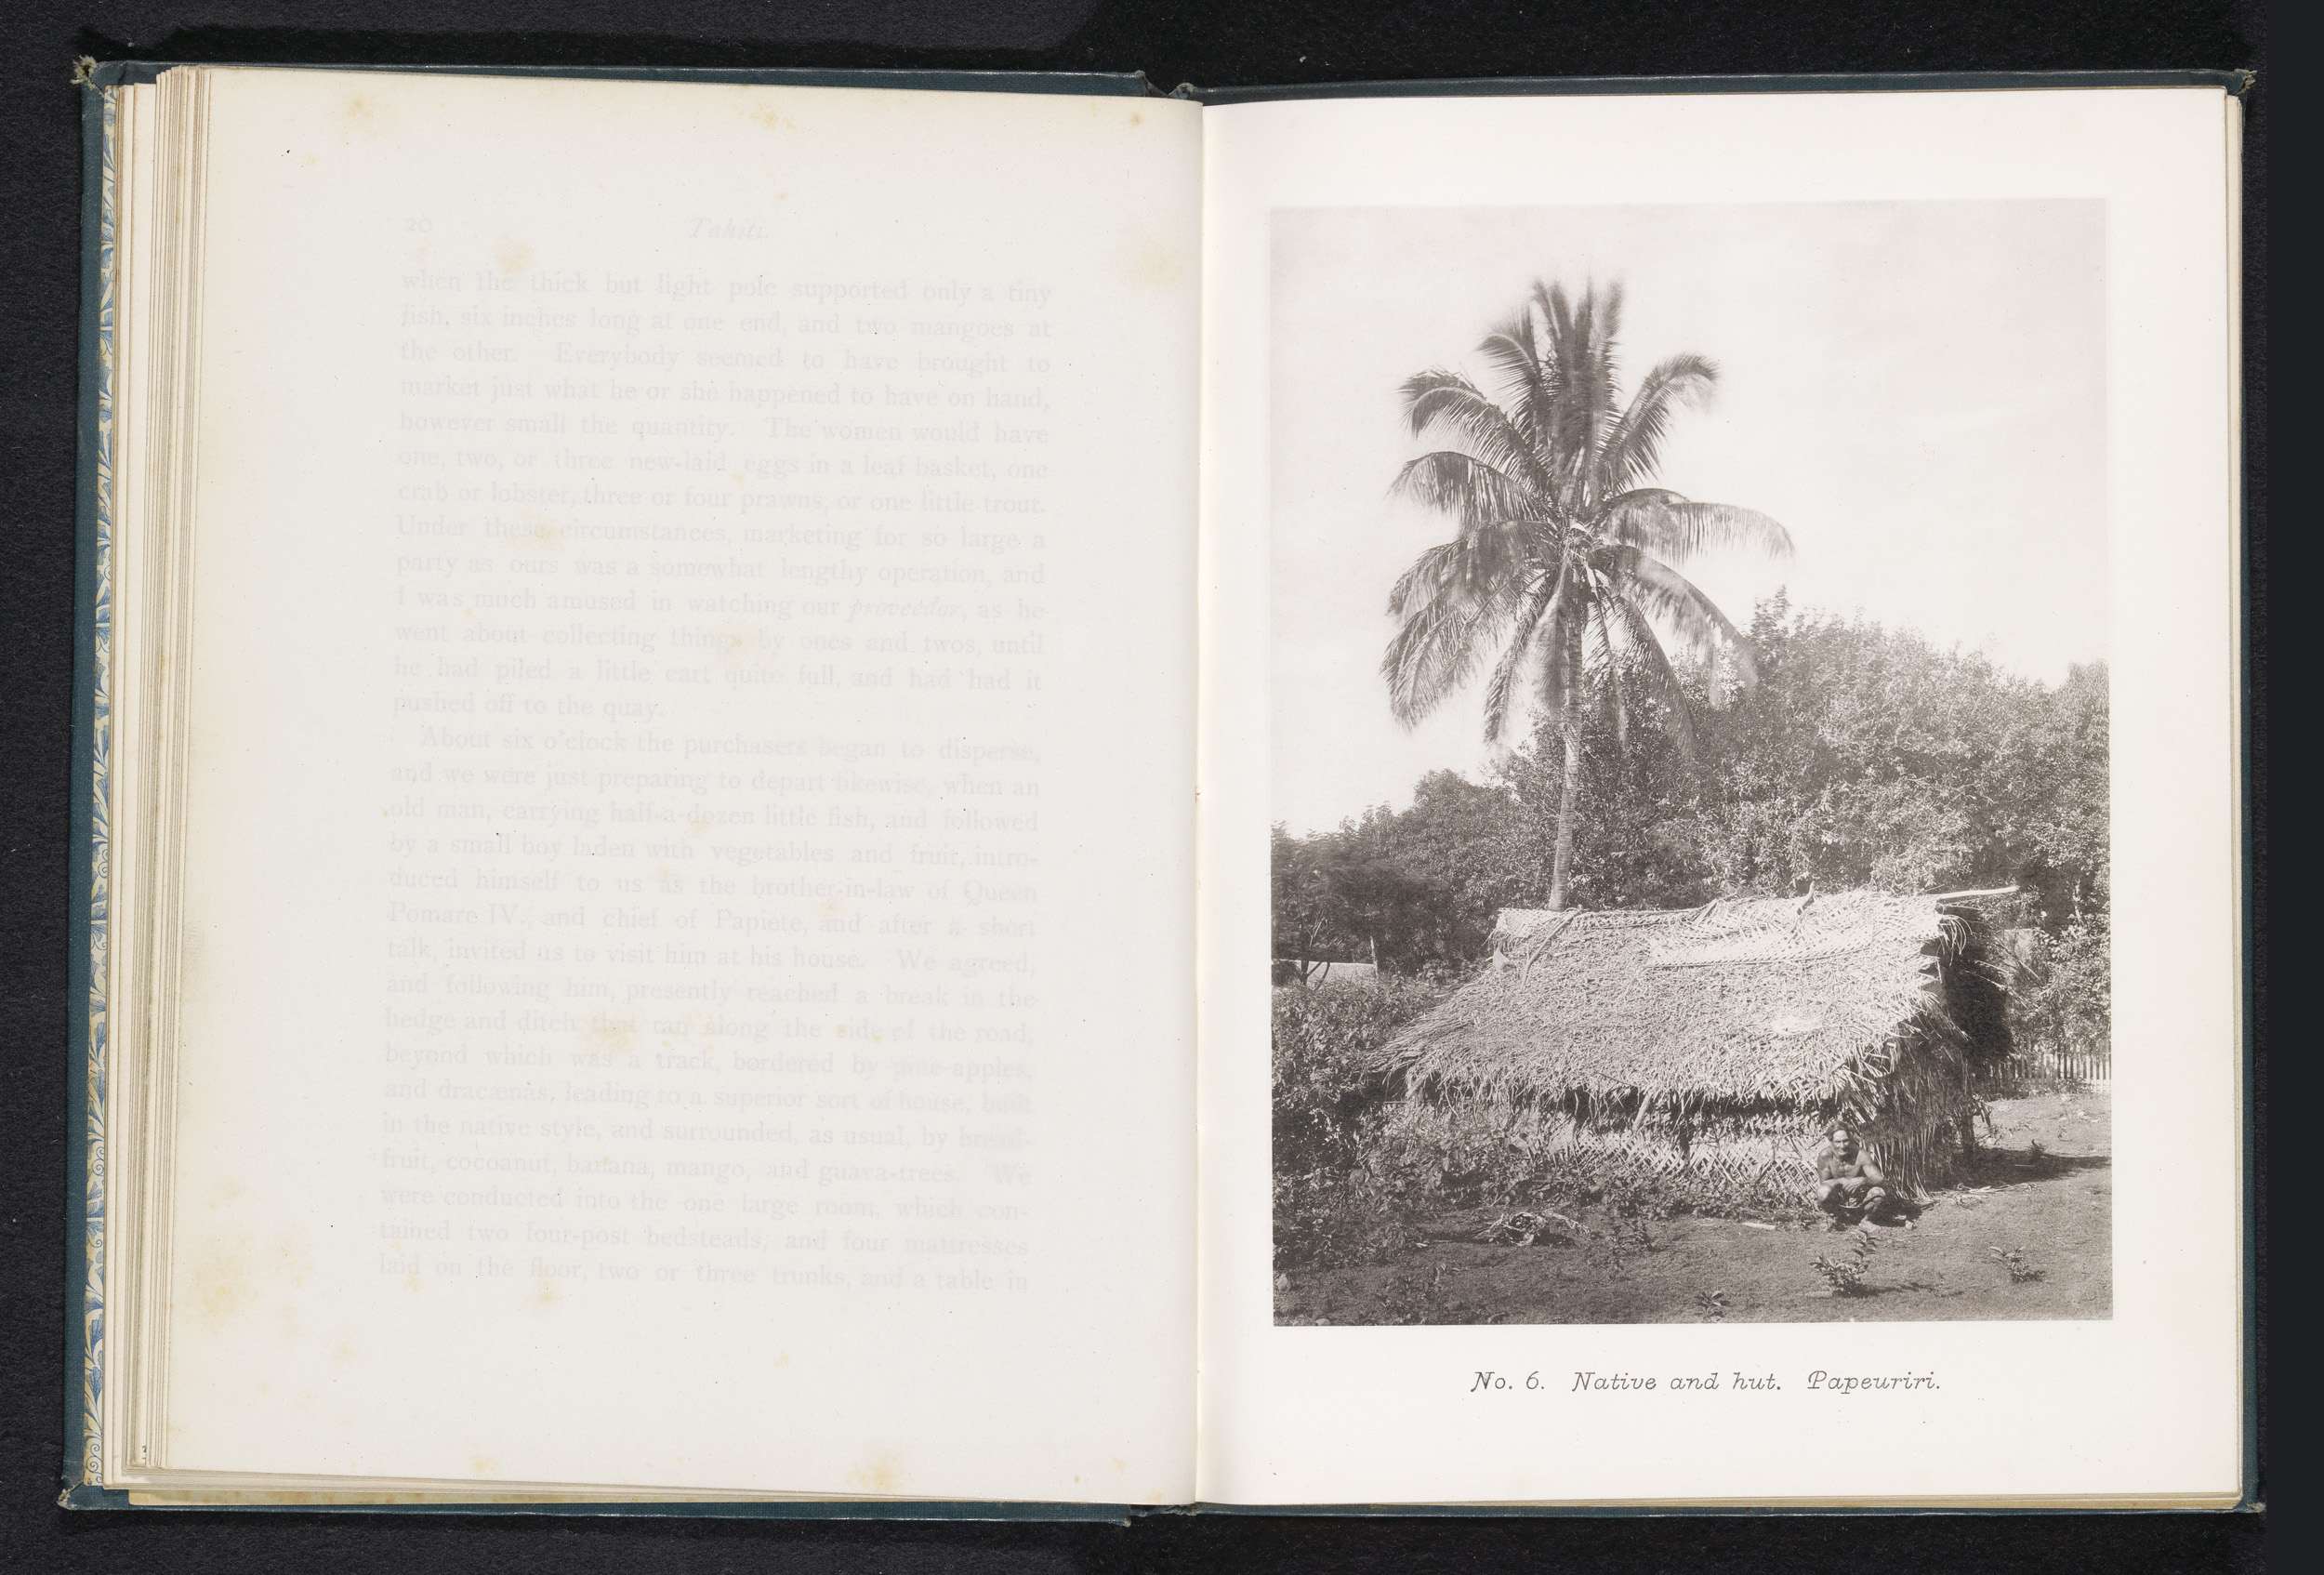 20 Tahiti.
when the thick but light pole supported only a tiny
fish, six inches long at one end, and two mangoes at
the other. Everybody seemed to have brought to
market just what he or she happened to have on hand,
however small the quantity. The women would have
one, two, or three new-laid eggs in a leaf basket, one
crab or lobster, three or four prawns, or one little trout.
Under these circumstances, marketing for so large a
party as ours was a somewhat lengthy operation, and
I was much amused in watching our proveedor, as he
went about collecting things by ones and twos, until
he had piled a little cart quite full, and had had it
pushed off to the quay.
About six o'clock the purchasers began to disperse,
and we were just preparing to depart likewise, when an
old man, carrying half-a-dozen little fish, and followed
by a small boy laden with vegetables and fruit, intro-
duced himself to us as the brother-in-law of Queen
Pomare IV. and chief of Papiete, and after a short
talk, invited us to visit him at his house. We agreed,
and following him, presently reached a break in the
hedge and ditch that ran along the side of the road,
beyond which was a track, bordered by pine-apples,
and dracænas, leading to a superior sort of house, built
in the native style, and surrounded, as usual, by bread-
fruit, cocoanut, banana, mango, and guava-trees. We
were conducted into the one large room, which con-
tained two four-post bedsteads, and four mattresses
laid on the floor, two or three trunks, and a table in
No. 6. Native and hut. Papeuriri.